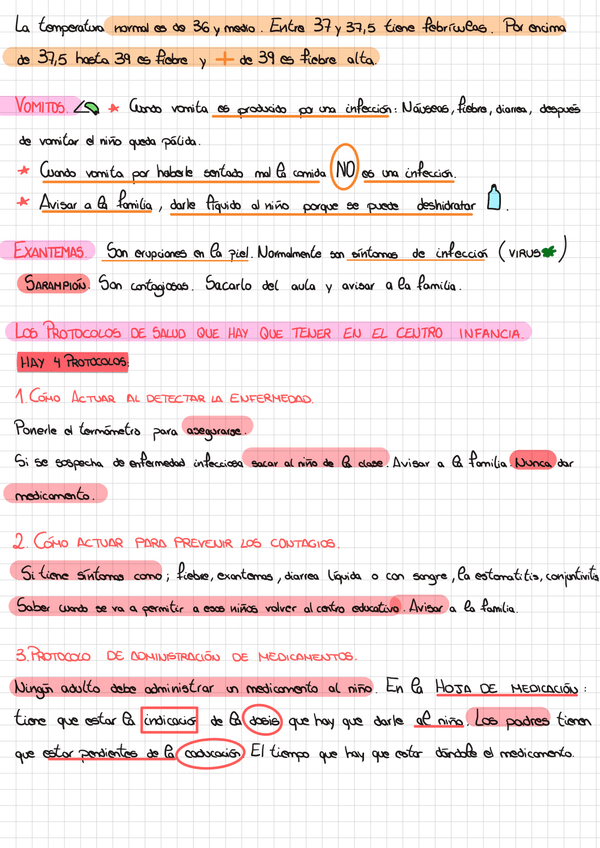 La temperatura normal es de 36 y medio. Entre 37 y 37,5 tiene febrículas. Por encima
de 37,5 hasta 39 es fiebre y + de 39 es fiebre alta.
VOMITOS. * Cuando vomita es producido por una infección: Náuseas, fiebre, diarrea, después
de vomitar el niño queda pálido.
* Cuando vomita por haberle sentado mal la comida NO es una infección.
* Avisar a la familia, darle líquido al niño porque se puede deshidratar.
EXANTEMAS. Son erupciones en la piel. Normalmente son síntomas de infección (VIRUS)
SARAMPIÓN. Son contagiosas. Sacarlo del aula y avisar a la familia.
LOS PROTOCOLOS DE SALUD QUE HAY QUE TENER EN EL CENTRO INFANCIA.
HAY 4 PROTOCOLOS:
1. CÓMO ACTUAR AL DETECTAR LA ENFERMEDAD.
Ponerle el termómetro para asegurarse.
Si se sospecha de enfermedad infecciosa sacar al niño de la clase. Avisar a la familia. Nunca dar
medicamento.
2. CÓMO ACTUAR PARA PREVENIR LOS CONTAGIOS.
Si tiene síntomas como; fiebre, exantemas, diarrea líquida o con sangre, la estomatitis, conjuntivitis
Saber cuando se va a permitir a esos niños volver al centro educativo. Avisar a la familia.
3. PROTOCOLO DE ADMINISTRACIÓN DE MEDICAMENTOS.
Ningún adulto debe administrar un medicamento al niño. En la HOJA DE MEDICACIÓN:
tiene que estar la indicación de la dosis que hay que darle al niño. Los padres tienen
que estar pendientes de la caducación. El tiempo que hay que estar dándole el medicamento.